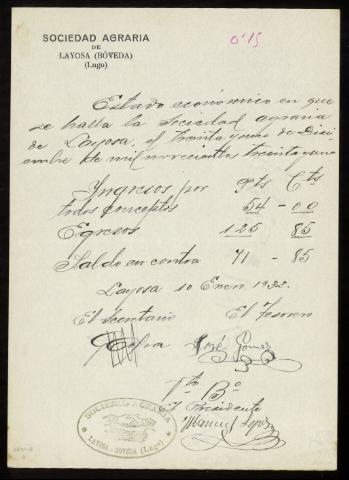 SOCIEDAD AGRARIA
DE
LAYOSA (BÓVEDA)
(Lugo)
0'15
Estado económico en que
se halla la Sociedad agraria
de Layosa, el treinta y uno de Dici
embre de mil novecientos treinta y uno
Ingresos por Pts Cts
todos conceptos 54 - 00
Egresos 125 85
Saldo en contra 71 - 85
Layosa 10 Enero 1932.
El Secretario El Tesorero
José Gomez
Vto Bº
El Presidente
Manuel Lopez
SOCIEDAD AGRARIA
LAYOSA - BÓVEDA (Lugo)